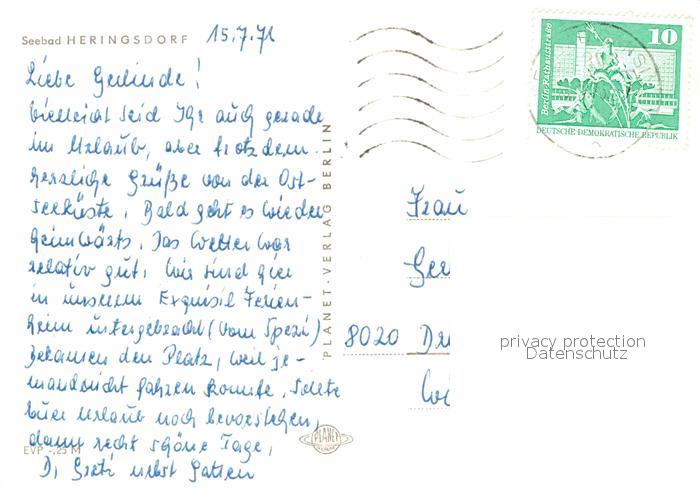 Seebad HERINGSDORF 15.7.72
Liebe Gerlinde!
Vielleicht seid Ihr auch gerade
im Urlaub, aber trotzdem
herzliche Grüße von der Ost-
seeküste. Bald geht es wieder
heimwärts. Das Wetter war
relativ gut. Wir sind hier
in unserem Exquisit Ferien-
heim untergebracht (vom Spezi)
Bekamen den Platz, weil je-
mand nicht fahren konnte. Sollte
euer Urlaub noch bevorstehen,
dann recht schöne Tage,
D. Gretz nebst Gatten
EVP -,25 M
PLANET-VERLAG BERLIN
PLANET
10
Berlin, Rathausstraße
DEUTSCHE DEMOKRATISCHE REPUBLIK
Frau
Ger
8020 Dre
privacy protection
Datenschutz